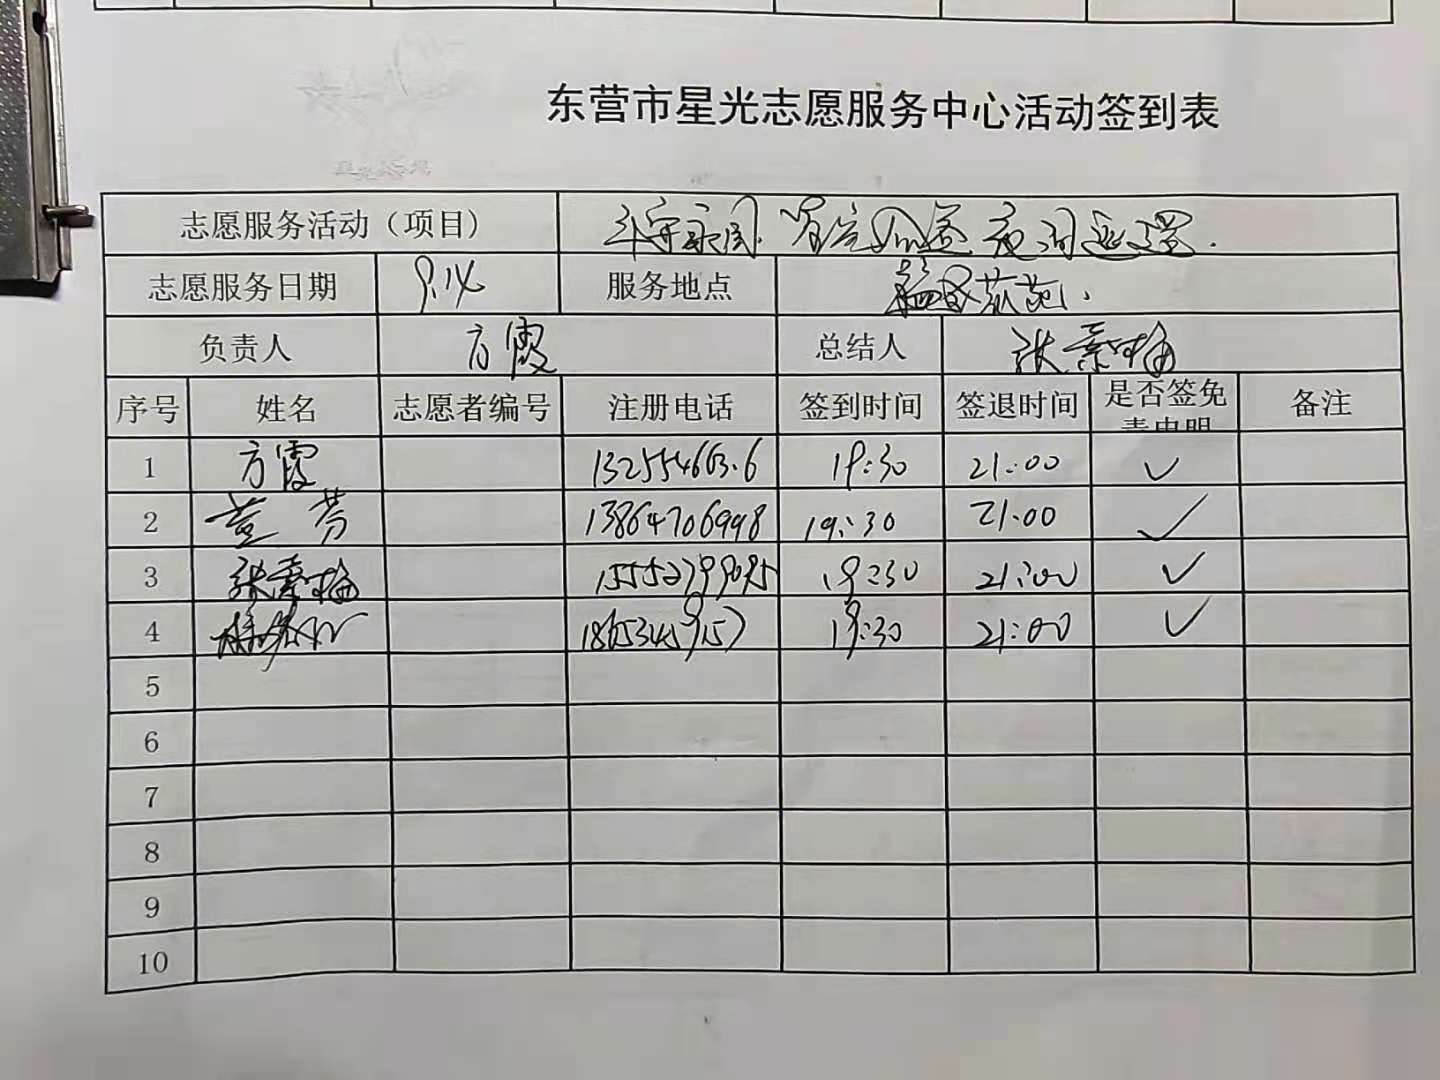 东营市星光志愿服务中心活动签到表
志愿服务活动（项目）
志愿服务日期 9.14 服务地点
负责人 方霞 总结人 张素梅
序号 姓名 志愿者编号 注册电话 签到时间 签退时间 是否签免责申明 备注
1 方霞 19:30 21:00 ✓
2 董芳 13864706998 19:30 21:00 ✓
3 张素梅 15552799095 19:30 21:00 ✓
4 19:30 21:00 ✓
5
6
7
8
9
10